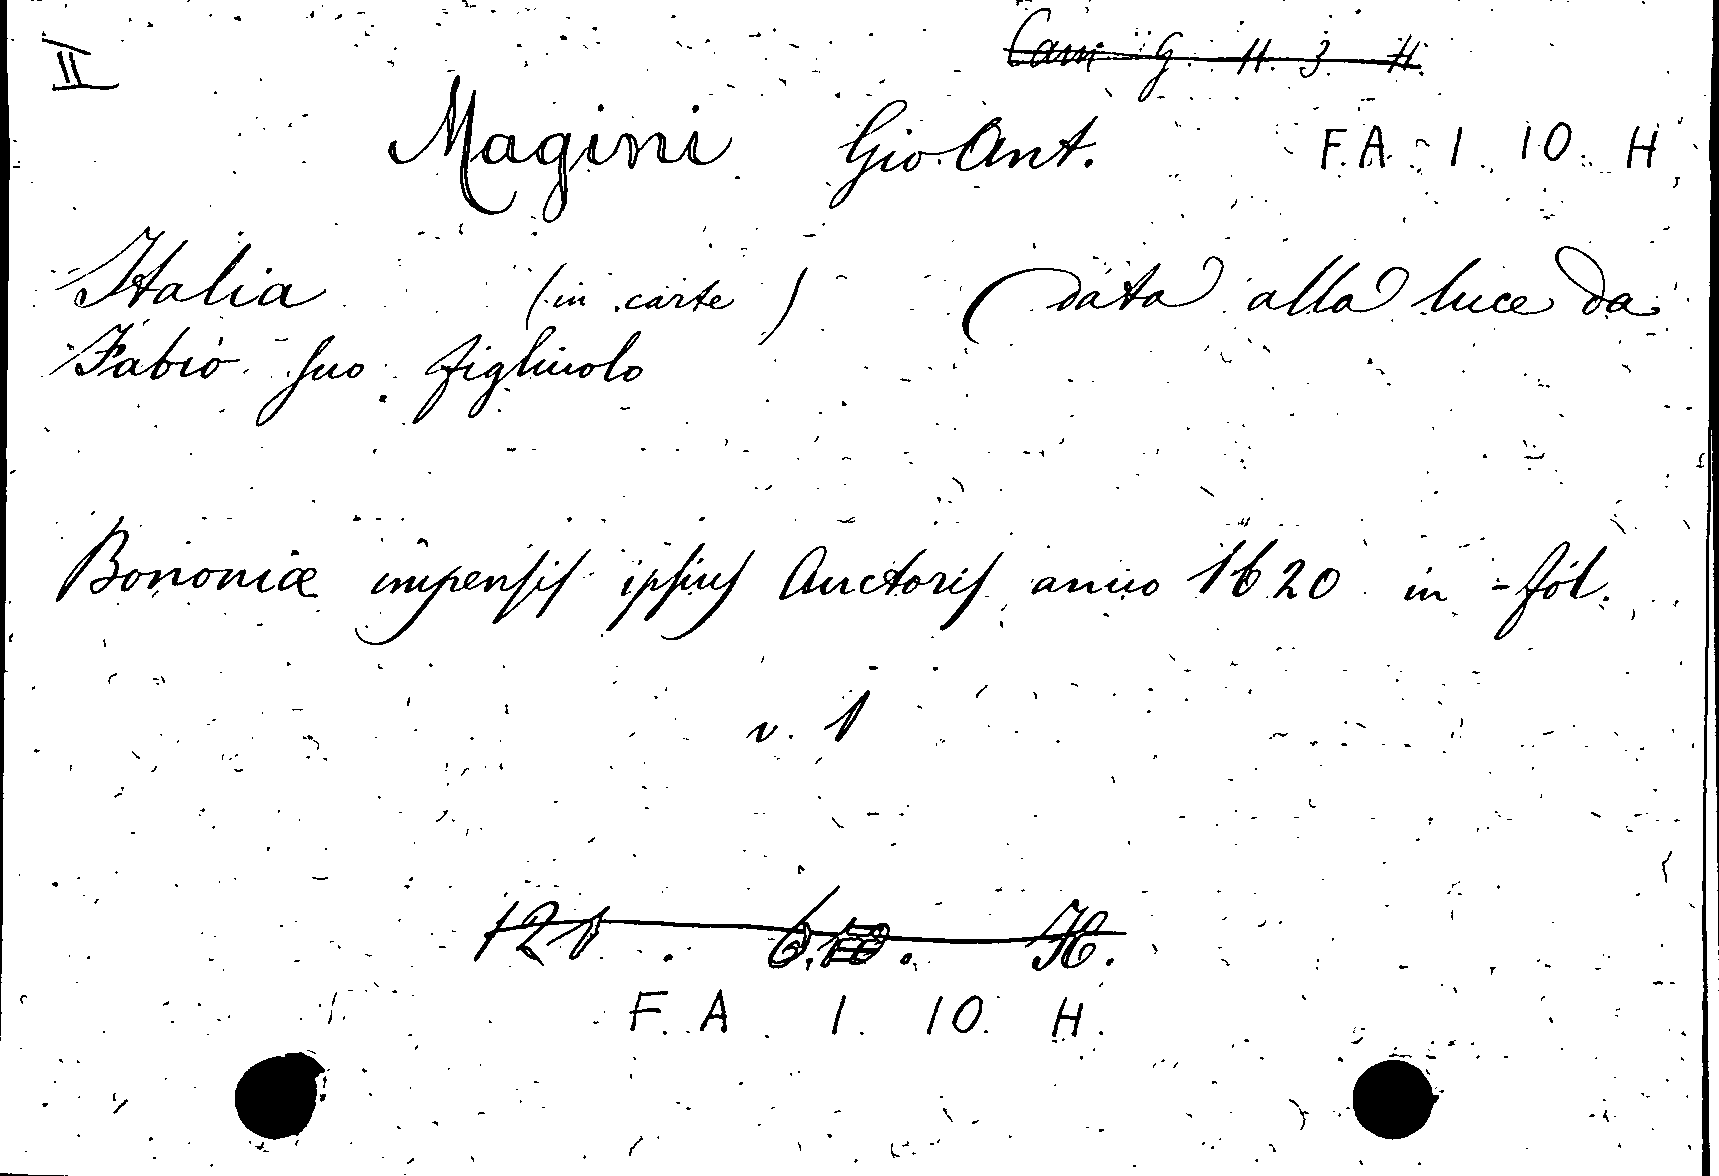 II
Cam G. H. 3 H.
Magini Gio. Ant. F. A. 1. 10. H
Italia (in carte) (data alla luce da
Fabio suo figliuolo
Bononiæ impensis ipsius Auctoris anno 1620 in-fol.
v. 1
121. 6.10. H.
F. A. 1. 10. H.